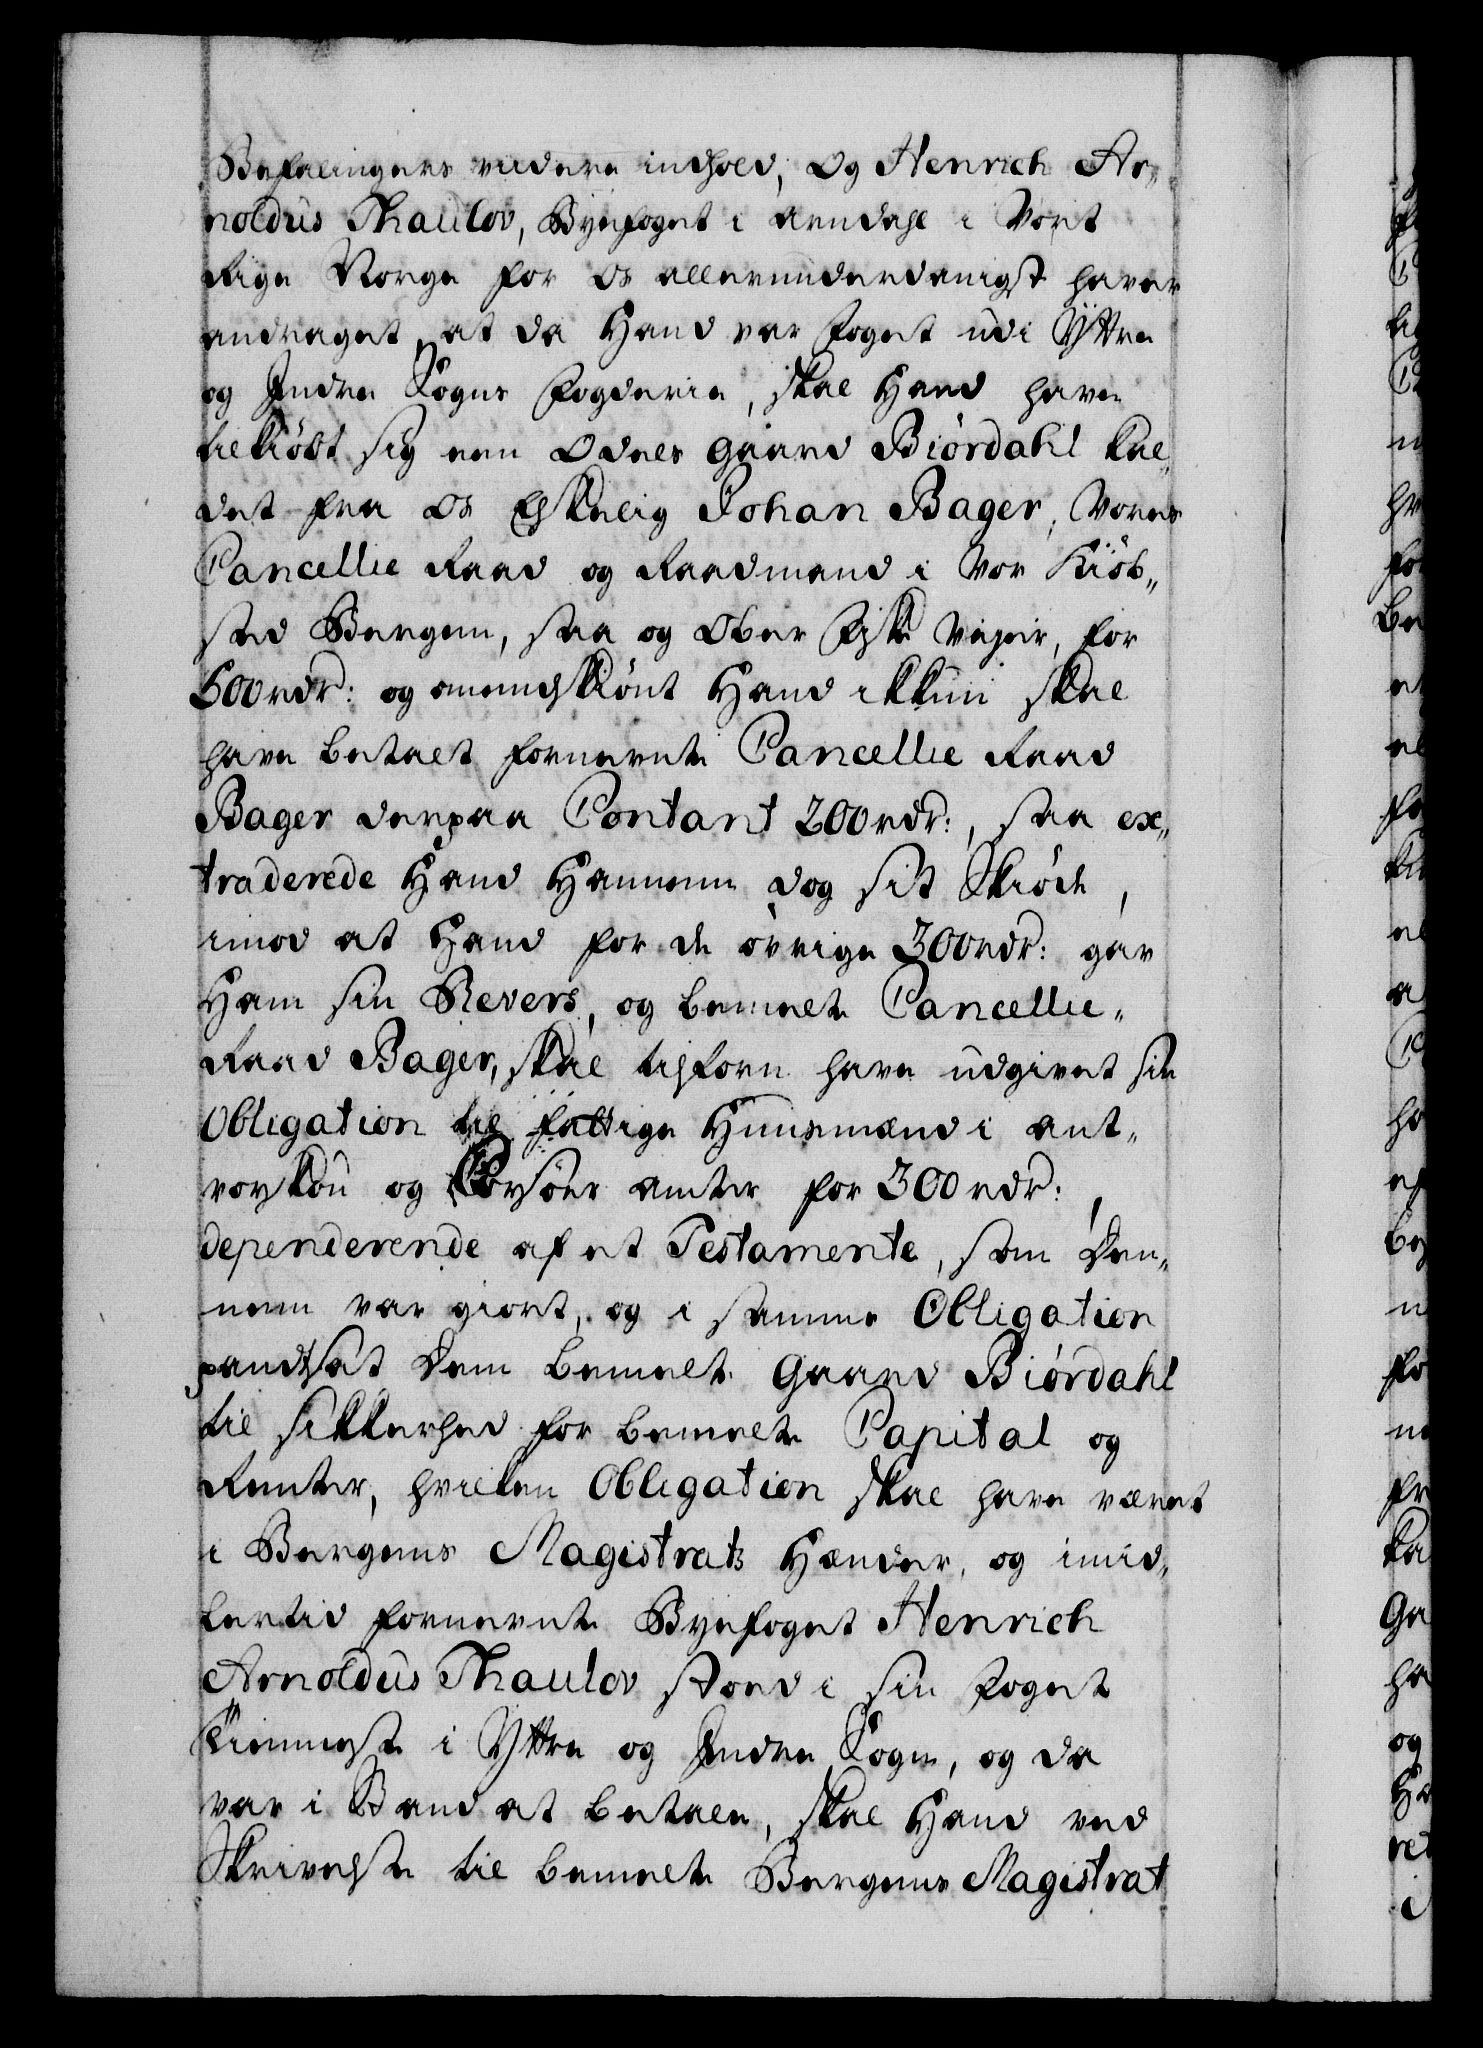 Befalingers viidere indhold, Og Henrich Ar„
noldus Thaulov, Byefoget i Arndahl i Vort
Rige Norge for os allerunderdanigst haver
andraget, at da Hand var foget udi Yttre
og Indre Sogns Fogderie, skal Hand have
tilkiöbt sig een Odels gaard Biördahl kal„
det fra os Elskelig Johan Bager, Vores
Cancellie Raad og Raadmand i Vor Kiöb„
sted Bergen, saa og Ober Fiske Vejeir, for
500 rdr: og omendskiönt Hand ikkun skal
have betalt fornevnte Cancellie Raad
Bager derpaa Contant 200 rdr:, saa ex„
traderede Hand Hannem dog sit Skiöde,
imod at Hand for de övrige 300 rdr: gav
Ham sin Revers, og bemelte Cancellie„
Raad Bager, skal tilforn have udgivet sin
Obligation til fattige Huusmænd i Ant„
vorskou og Corsöer amter for 300 rdr:,
dependerende af et Testamente, som Den„
nem var giort, og i samme Obligation
pandtsat Dem bemelte Gaard Biördahl
til Sikkerhed for bemelte Capital og
Renter, hvilken Obligation skal have været
i Bergens Magistrats Hænder, og imid„
lertid fornevnte Byefoget Henrich
Arnoldus Thaulov stoed i sin foget
Tienneste i Yttre og Indre Sogn, og da
var i Stand at betale, skal Hand ved
Skrivelse til bemelte Bergens Magistrat